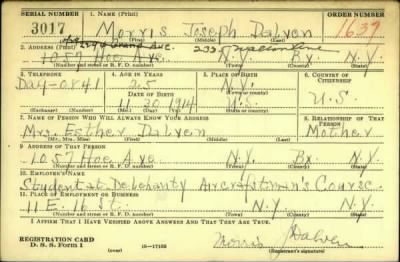 SERIAL NUMBER
1. NAME (Print)
ORDER NUMBER
3017
Morris Joseph Dalven
1637
(First) (Middle) (Last)
2. ADDRESS (Print)
Grand Ave.
1057 Hoe Ave N.Y. Bx. N.Y.
(Number and street or R. F. D. number) (Town) (County) (State)
3. TELEPHONE
4. AGE IN YEARS
5. PLACE OF BIRTH
6. COUNTRY OF CITIZENSHIP
DAY-0841
N.Y.
DATE OF BIRTH
(Town or county)
11 20 1914
U.S.
U.S.
(Exchange) (Number)
(Mo.) (Day) (Yr.)
(State or country)
7. NAME OF PERSON WHO WILL ALWAYS KNOW YOUR ADDRESS
8. RELATIONSHIP OF THAT PERSON
Mrs. Esther Dalven
Mother
(Mr., Mrs., Miss) (First) (Middle) (Last)
9. ADDRESS OF THAT PERSON
1057 Hoe Ave N.Y. Bx. N.Y.
(Number and street or R. F. D. number) (Town) (County) (State)
10. EMPLOYER'S NAME
Student at Delehanty Aircraftsmen's Course
11. PLACE OF EMPLOYMENT OR BUSINESS
11 E. 16 St. N.Y. N.Y.
(Number and street or R. F. D. number) (Town) (County) (State)
I AFFIRM THAT I HAVE VERIFIED ABOVE ANSWERS AND THAT THEY ARE TRUE.
REGISTRATION CARD
D. S. S. Form 1
(over)
16—17105
Morris J Dalven
(Registrant's signature)